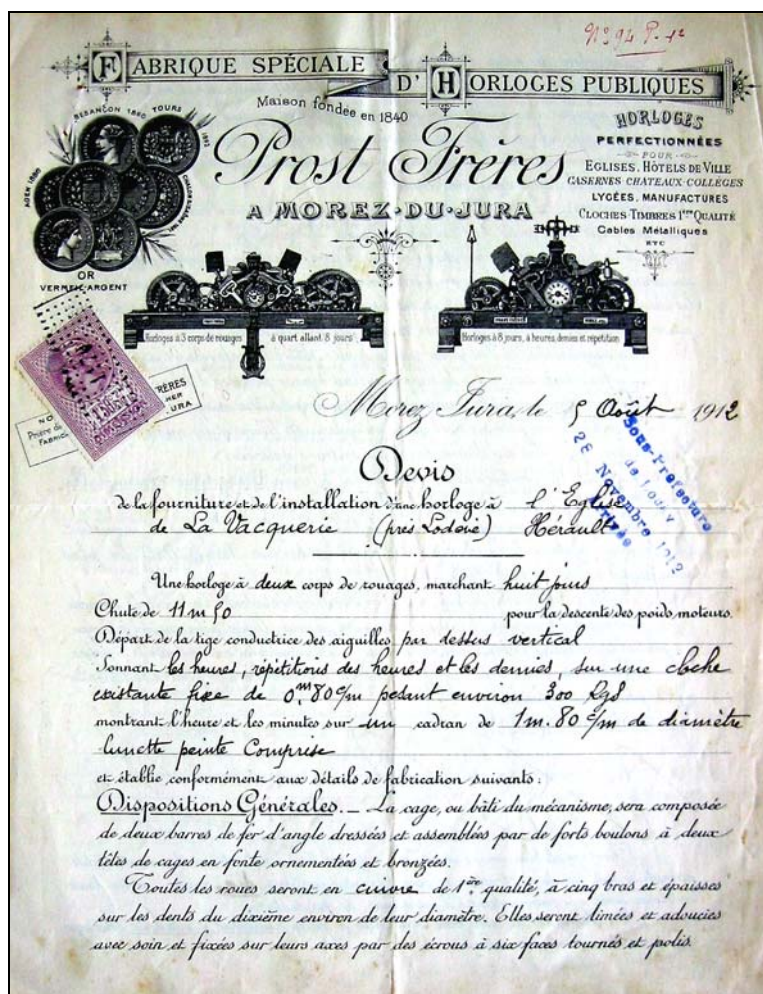 Nº 94 P.
FABRIQUE SPÉCIALE D'HORLOGES PUBLIQUES
Maison fondée en 1840
Prost Frères
A MOREZ-DU-JURA
BESANÇON 1860 TOURS
AGEN
OR
VERMEIL-ARGENT
HORLOGES
PERFECTIONNÉES
POUR
EGLISES. HÔTELS DE VILLE
CASERNES-CHATEAUX-COLLÉGES
LYCÉES. MANUFACTURES
CLOCHES-TIMBRES 1ERE QUALITÉ
Cables Métalliques
ETC
Horloges à 3 corps de rouages à quart allant 8 jours
Horloges à 8 jours, à heures, demies et répétition
Prière de
FABRIC
RÈRES
URA
Morez Jura, le 5 Août 1912
Sous-Préfecture
de Lodève
28 Novembre 1912
Arrivée
Devis
de la fourniture et de l'installation d'une horloge à l'Eglise
de La Vacquerie (près Lodève) Hérault
Une horloge à deux corps de rouages, marchant huit jours
Chute de 11 m 50 pour la descente des poids moteurs.
Départ de la tige conductrice des aiguilles par dessus vertical
Sonnant les heures, répétitions des heures et les demies, sur une cloche
existante fixe de 0m.80 c/m pesant environ 300 Kgs
montrant l'heure et les minutes sur un cadran de 1m.80 c/m de diamètre
lunette peinte comprise
et établie conformément aux détails de fabrication suivants:
Dispositions Générales. — La cage, ou bâti du mécanisme, sera composée
de deux barres de fer d'angle dressées et assemblées par de forts boulons à deux
têtes de cages en fonte ornementées et bronzées.
Toutes les roues seront en cuivre de 1ère qualité, à cinq bras et épaisses
sur les dents du dixième environ de leur diamètre. Elles seront limées et adoucies
avec soin et fixées sur leurs axes par des écrous à six faces tournés et polis.